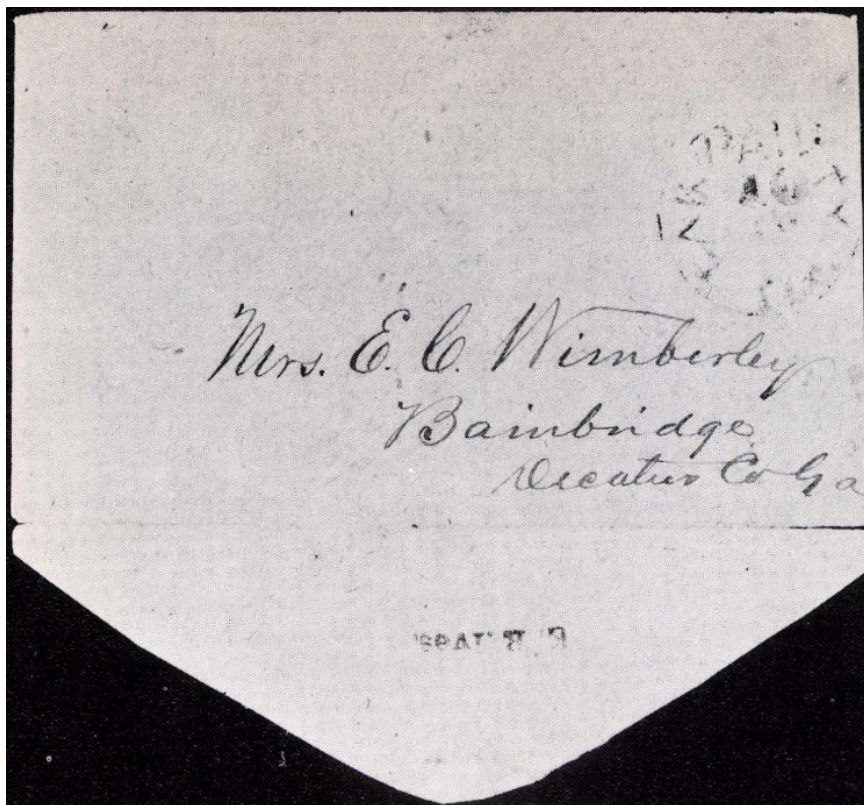 PAID
10
Mrs. E. C. Wimberley
Bainbridge
Decatur Co Ga
E. R. Ives.